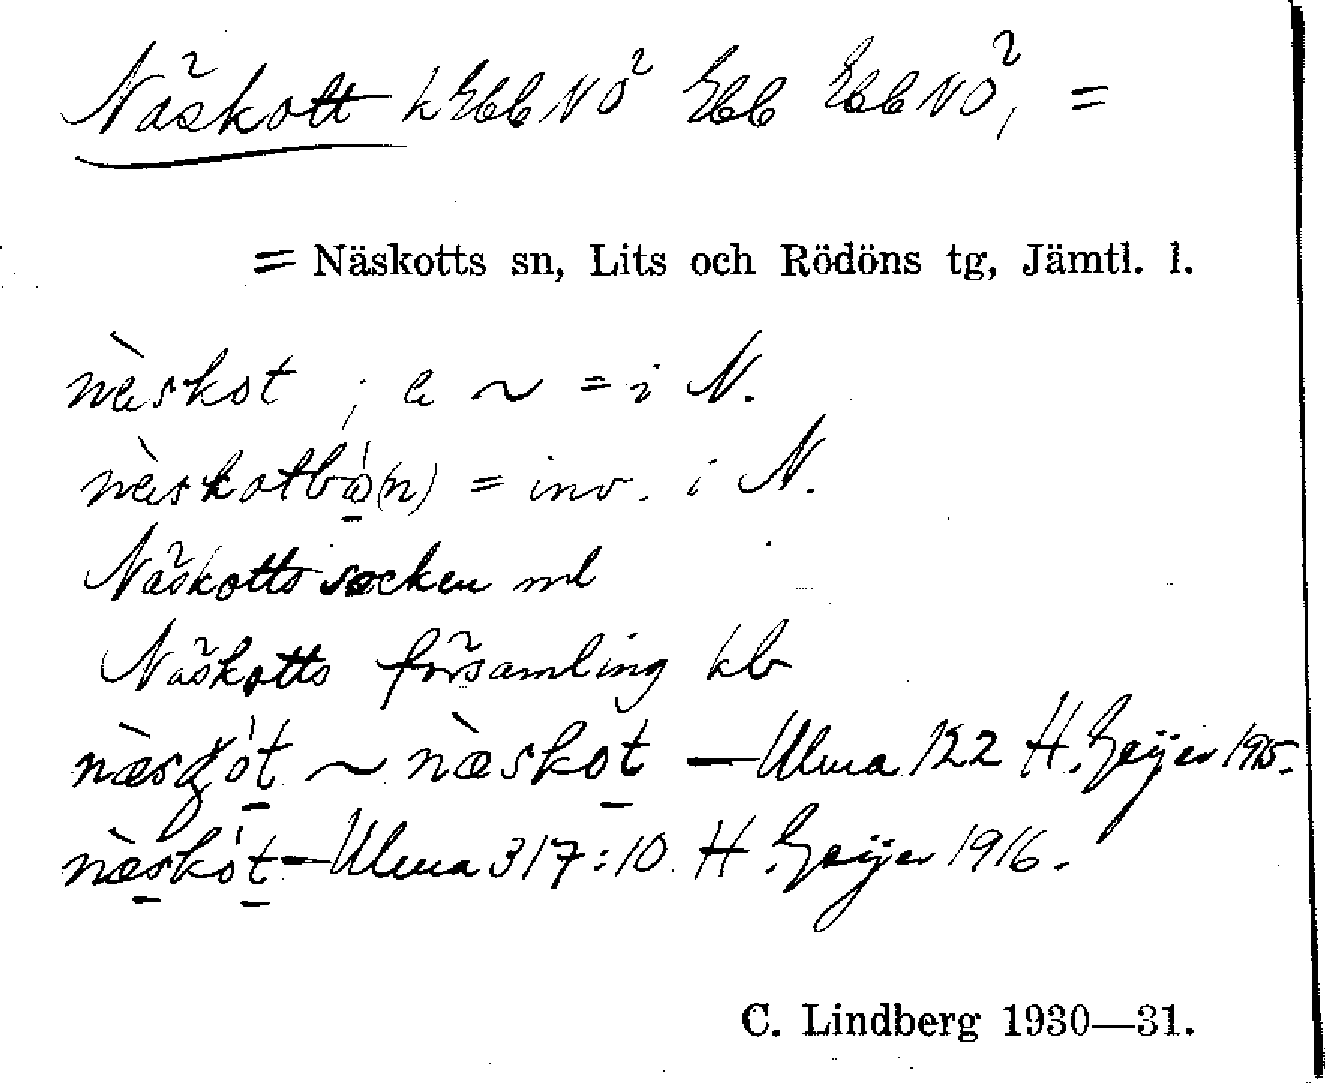 Näskott k EbbNÖ Ebb EbbNÖ, =
= Näskotts sn, Lits och Rödöns tg, Jämtl. l.
næ̀skot ; a ~ = i N.
næ̀skotbó(n) = inv. i N.
Näskotts socken ml
Näskotts församling kb
~ næ̀skot — Ulma 122 H. Geijer
næ̀skót – Ulma 317:10 H. Geijer 1916.
C. Lindberg 1930—31.